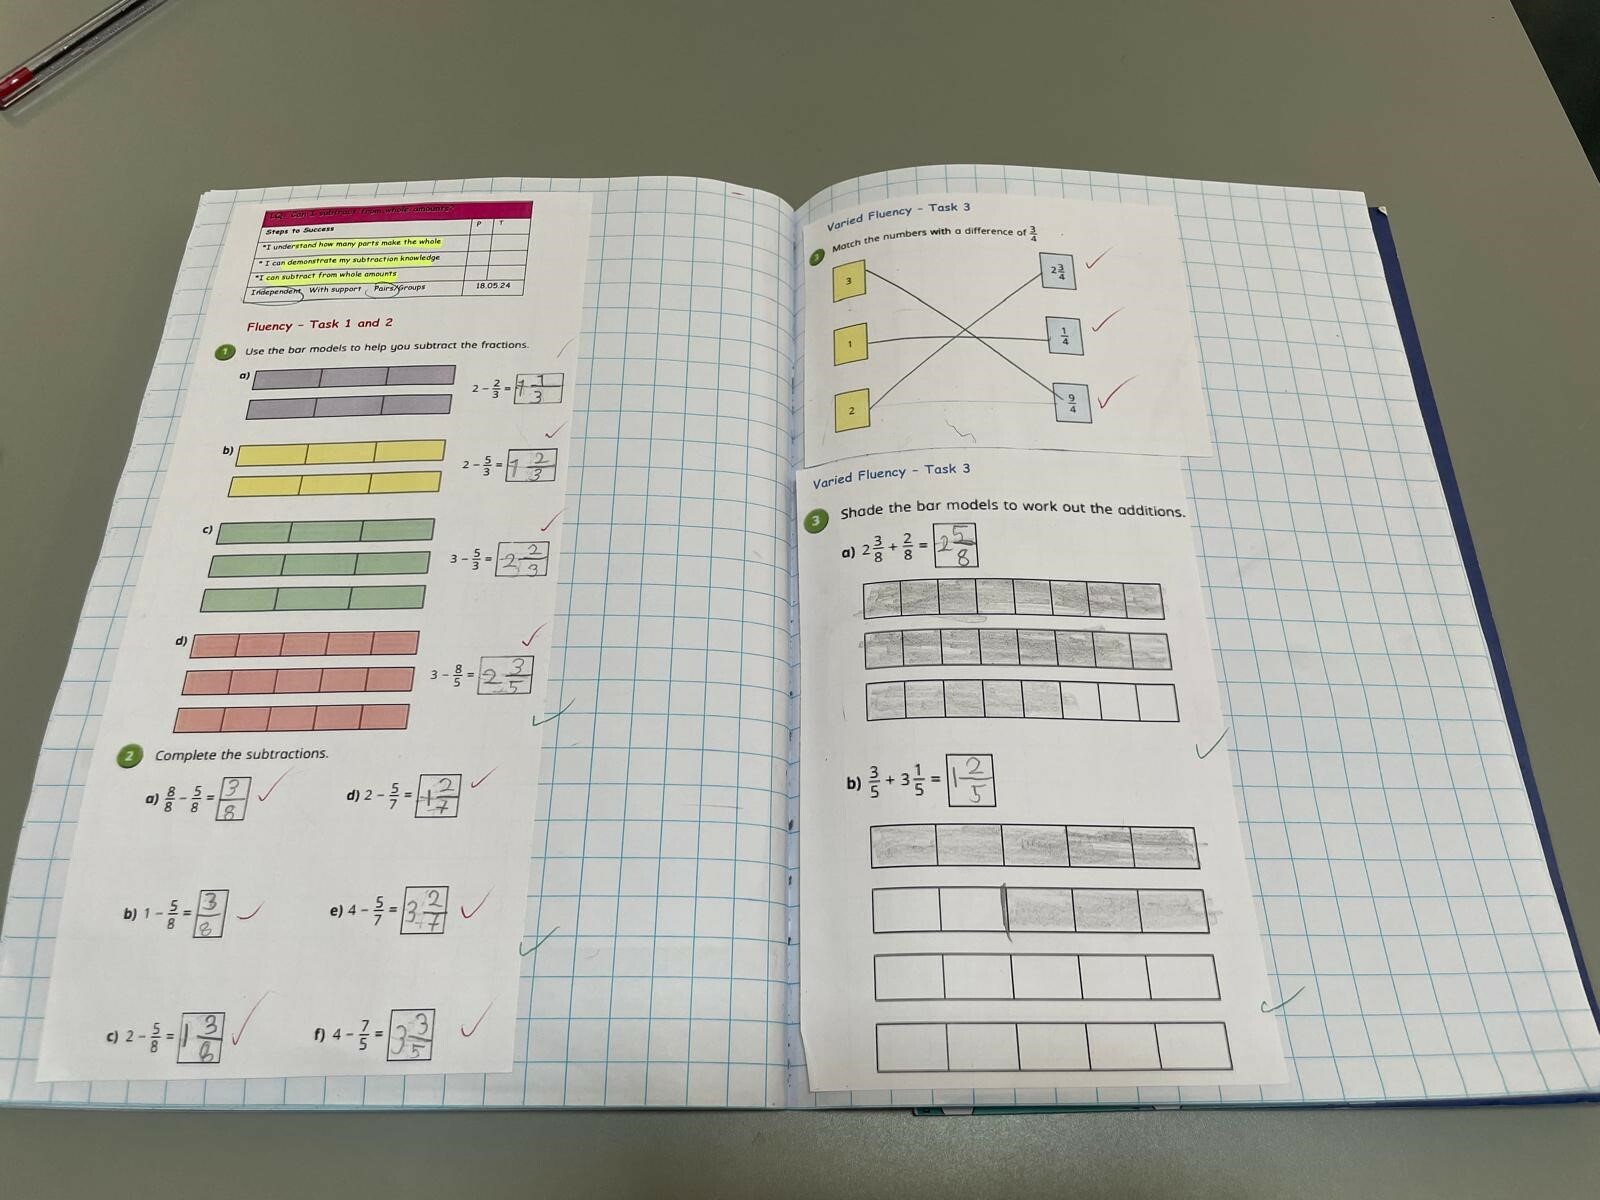 LQ: Can I subtract from whole amounts?
Steps to Success P T
*I understand how many parts make the whole
* I can demonstrate my subtraction knowledge
*I can subtract from whole amounts
Independent With support Pairs/Groups 18.05.24
Fluency - Task 1 and 2
1 Use the bar models to help you subtract the fractions.
a) 2 - 2/3 = 1 1/3
b) 2 - 5/3 = 1 2/3
c) 3 - 5/3 = 2 2/3
d) 3 - 8/5 = 2 3/5
2 Complete the subtractions.
a) 8/8 - 5/8 = 3/8 d) 2 - 5/7 = 1 2/7
b) 1 - 5/8 = 3/8 e) 4 - 5/7 = 3 2/7
c) 2 - 5/8 = 1 3/8 f) 4 - 7/5 = 3 3/5
Varied Fluency - Task 3
3 Match the numbers with a difference of 3/4
3 2 3/4
1 1/4
2 9/4
Varied Fluency - Task 3
3 Shade the bar models to work out the additions.
a) 2 3/8 + 2/8 = 2 5/8
b) 3/5 + 3 1/5 = 1 2/5